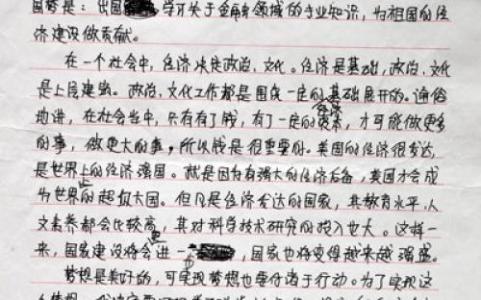 国梦是：出国学习关于金融领域的专业知识，为祖国的经
济建设做贡献。
在一个社会中，经济决定政治、文化。经济是基础，政治、文化
是上层建筑。政治、文化工作都是围绕一定的经济基础展开的。通俗
地讲，在社会当中，只有有了钱，有了一定的资本，才可能做更多
的事，做更大的事，所以钱是很重要的。美国的经济很发达，
是世界上的经济强国。就是因为有强大的经济后备，美国才会成
为世界的超级大国。但凡是经济发达的国家，其教育水平、人
文素养都会比较高，其对科学技术研究的投入也大。这样一
来，国家建设将会进一，国家也将变得越来越强盛。
梦想是美好的，可实现梦想也要付诸于行动。为了实现这